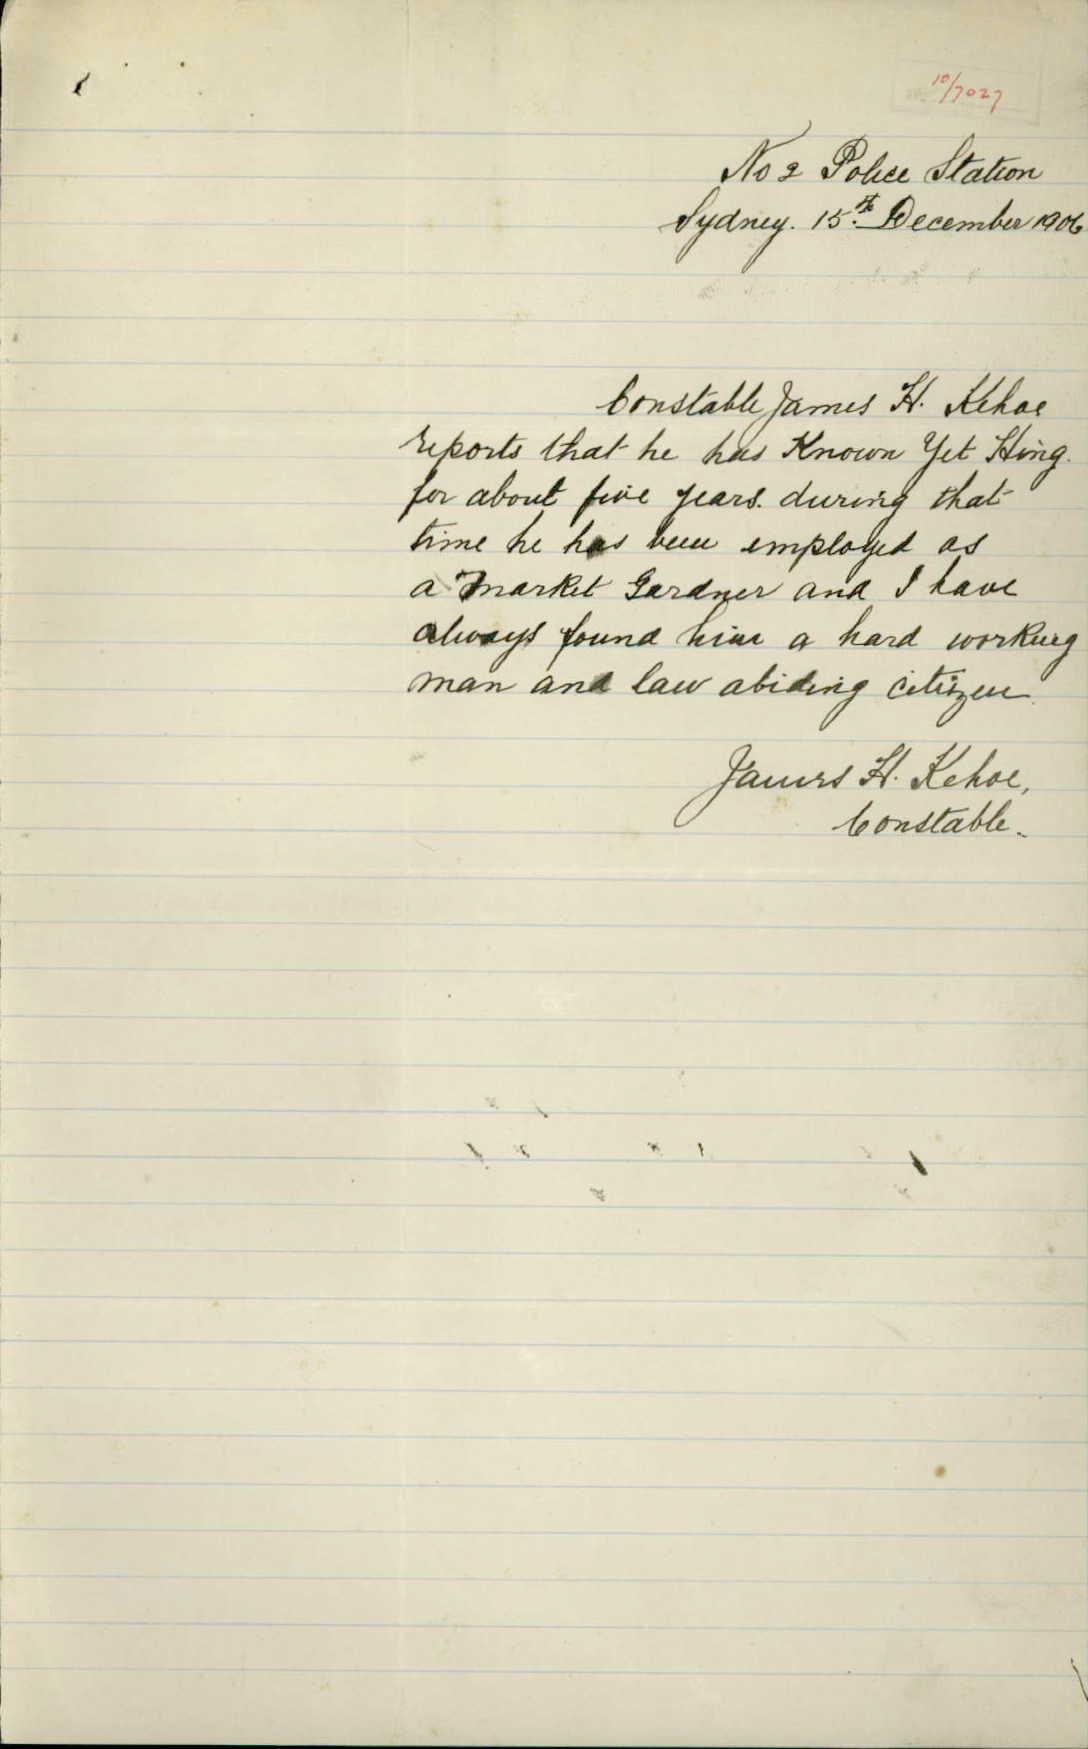 10/7027
No 2 Police Station
Sydney. 15th December 1906
Constable James H. Kehoe
reports that he has Known Yet Hing.
for about five years. during that
time he has been employed as
a Market Gardner and I have
always found him a hard working
man and law abiding citizen.
James H. Kehoe,
Constable.